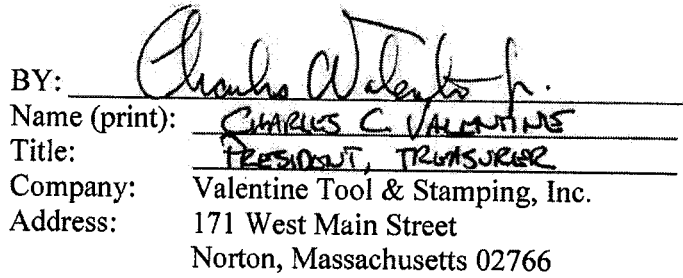 BY: Charles Valentine Jr.
Name (print): CHARLES C. VALENTINE
Title: PRESIDENT, TREASURER
Company: Valentine Tool & Stamping, Inc.
Address: 171 West Main Street
Norton, Massachusetts 02766